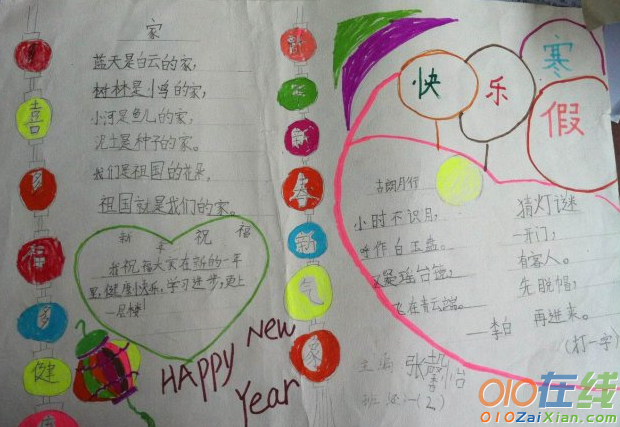 多喜多福多健康
家
蓝天是白云的家,
树林是小鸟的家,
小河是鱼儿的家,
泥土是种子的家。
我们是祖国的花朵,
祖国就是我们的家。
新年祝福
我祝福大家在新的一年
里,健康快乐,学习进步,更上
一层楼!
HAPPY New
Year
新年新春新气象
快乐
寒
假
古朗月行
小时不识月,
呼作白玉盘。
又疑瑶台镜,
飞在青云端。
——李白
猜灯谜
一开门,
有客人。
先脱帽,
再进来。
(打一字)
主编 张
班级 (2)
010在线
010ZaiXian.com